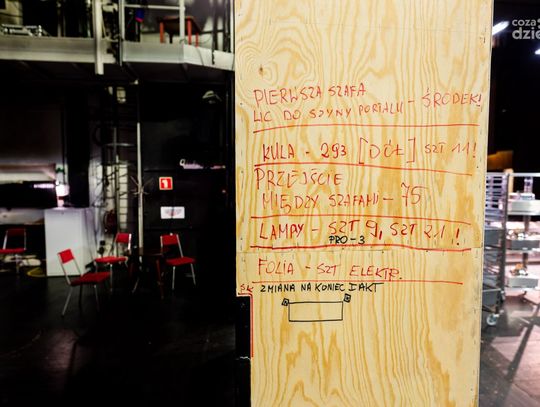 coza
dzień
PIERWSZA SZAFA
LIC DO SZYNY PORTALU - ŚRODEK!
KULA - 293 [DÓŁ] SZT 11!
PRZEJŚCIE
MIĘDZY SZAFAMI - 75
LAMPY - SZT 9, SZT 21!
PRO-3
FOLIA - SZT ELEKTR.
ZMIANA NA KONIEC I AKT